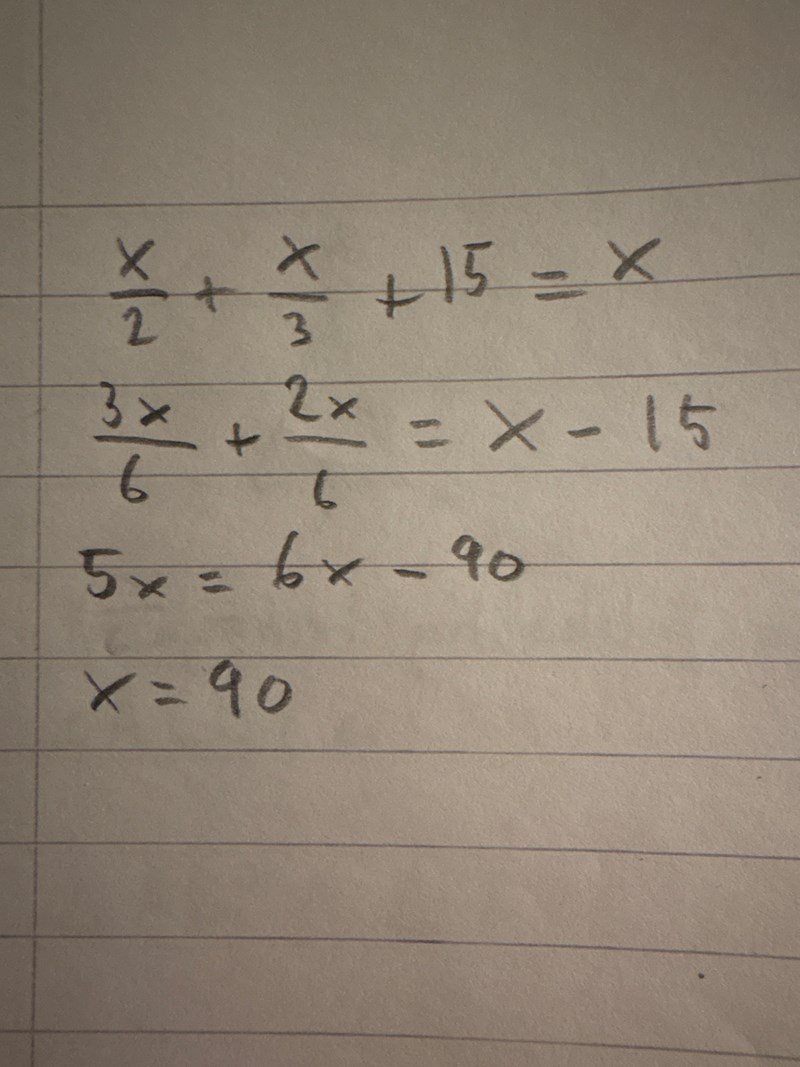 x/2 + x/3 + 15 = x
3x/6 + 2x/6 = x - 15
5x = 6x - 90
x = 90